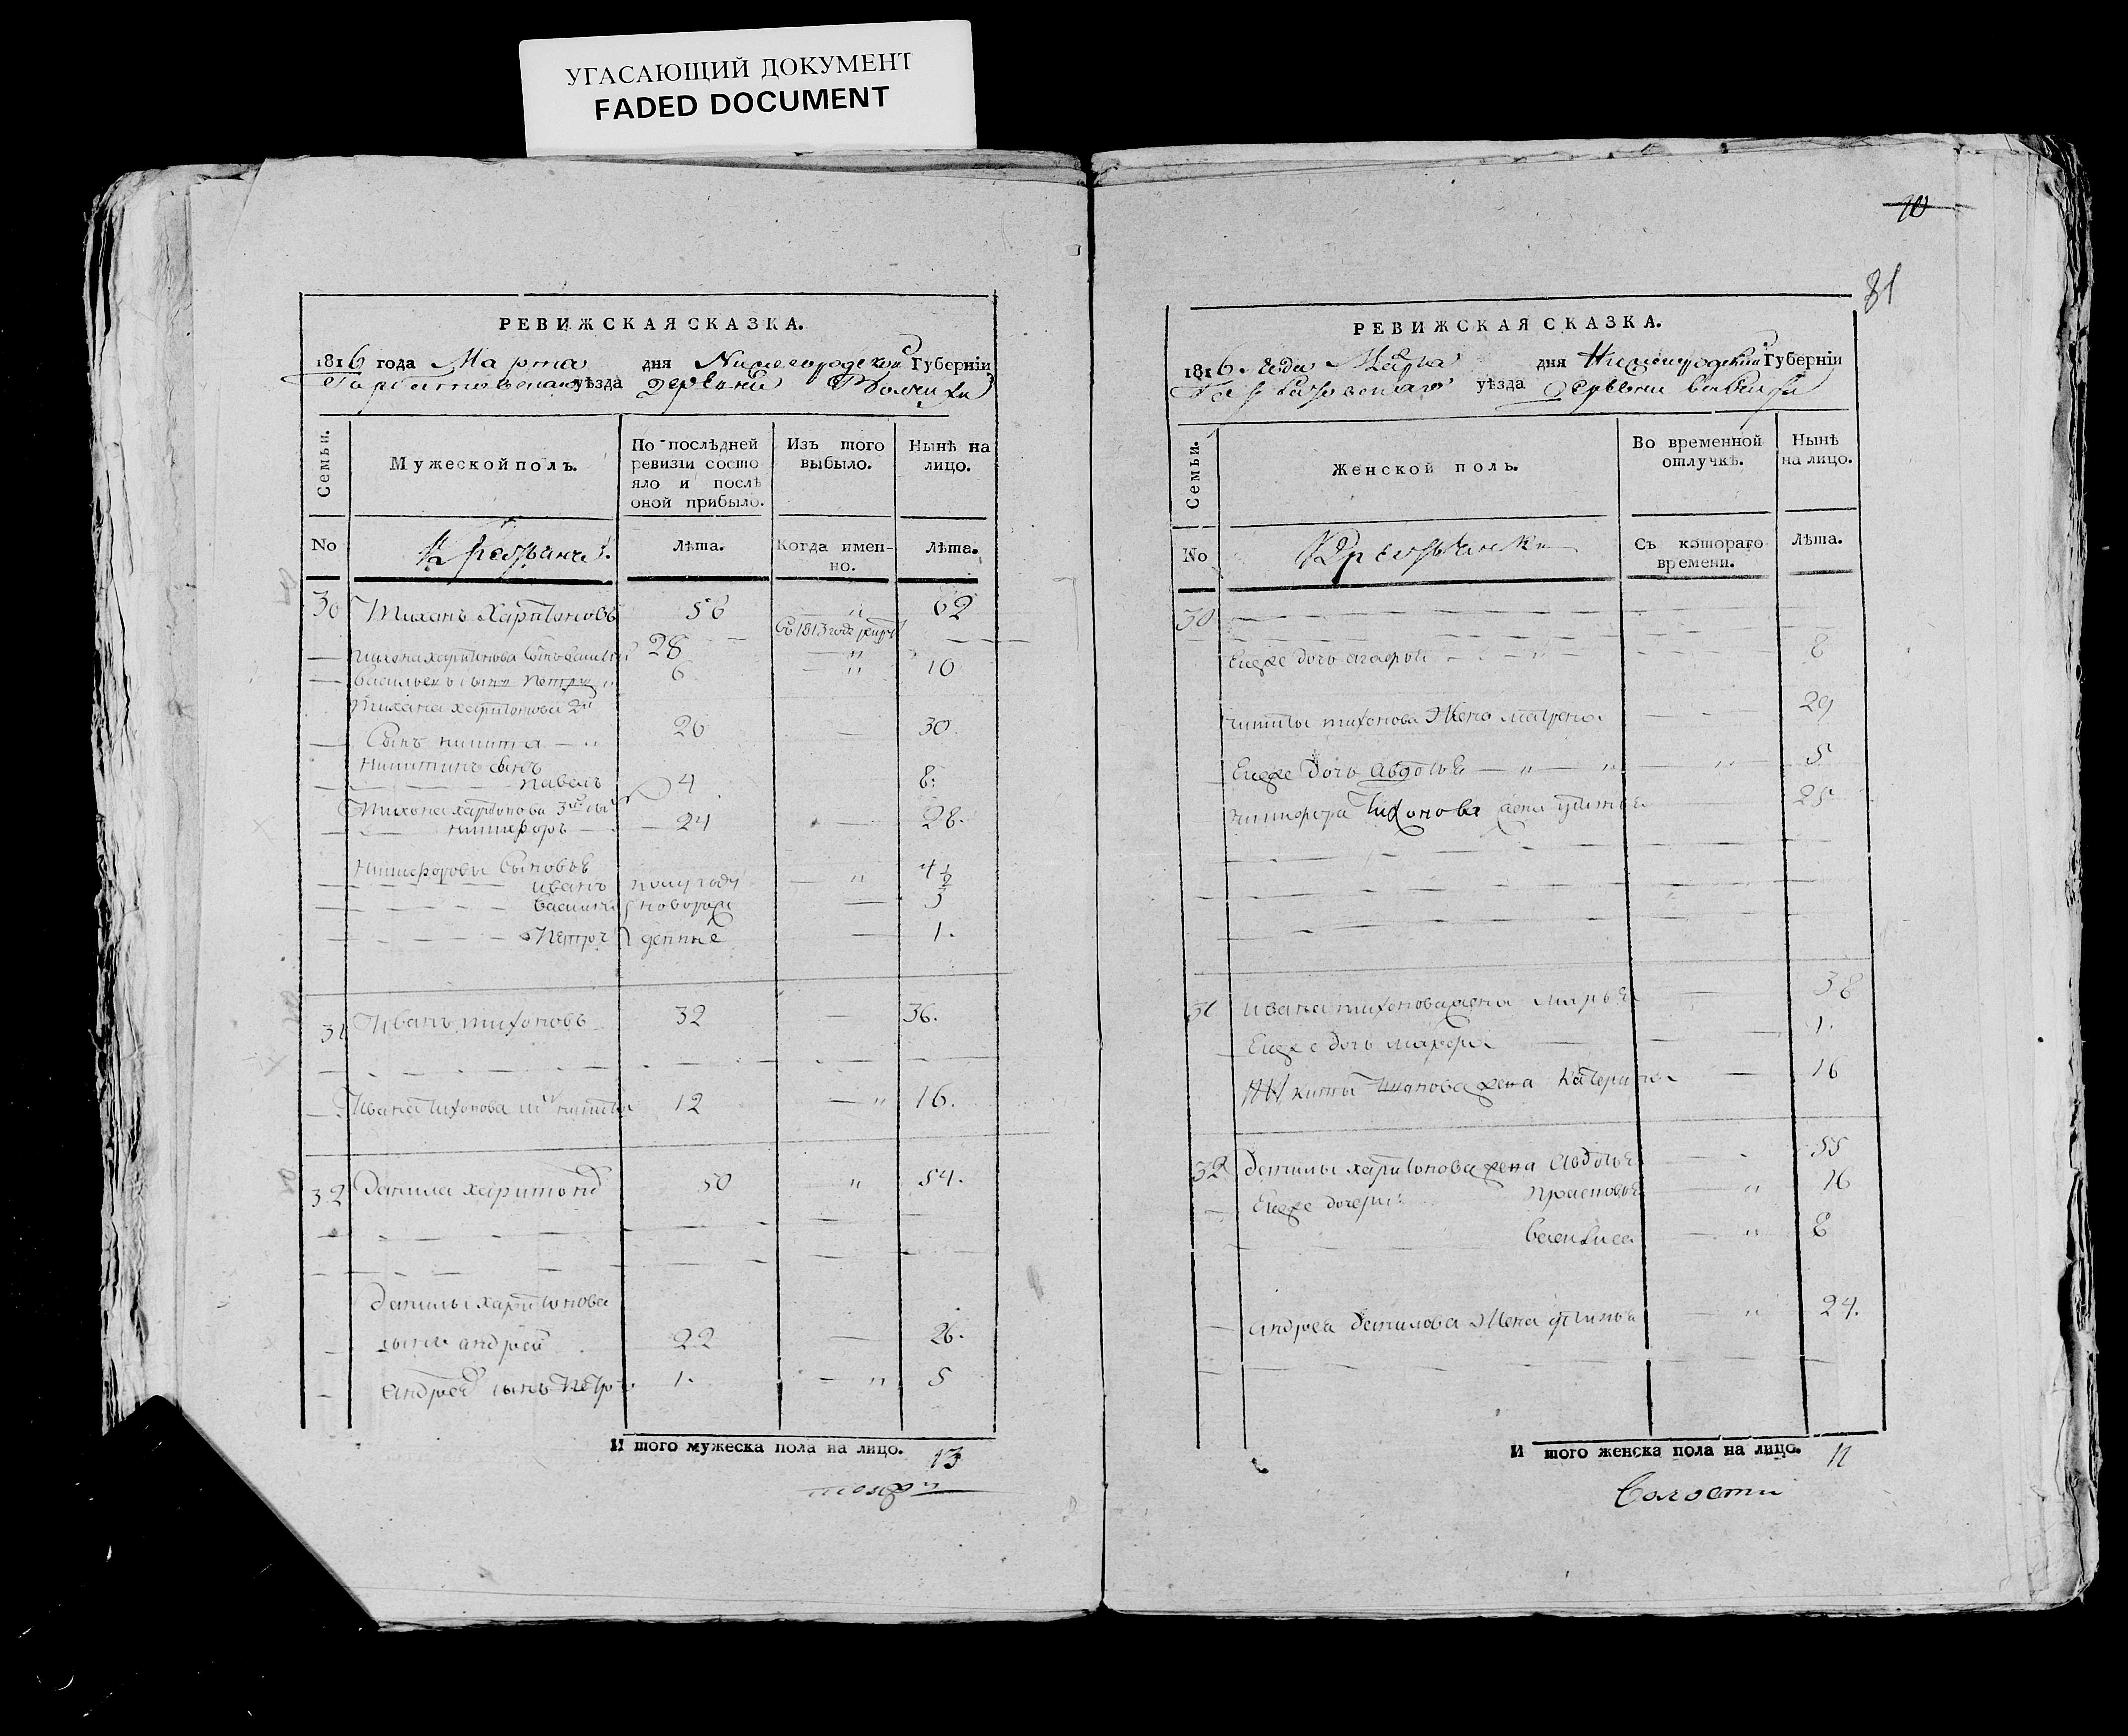 УГАСАЮЩИЙ ДОКУМЕНТ
FADED DOCUMENT
РЕВИЖСКАЯ СКАЗКА.
1816 года Марта дня Нижегородской Губерніи
уѣзда деревни
Семьи.
Мужеской полъ.
По послѣдней ревизіи состояло и послѣ оной прибыло.
Изъ того выбыло.
Нынѣ на лицо.
No
Крестьяне.
Лѣта.
Когда именно.
Лѣта.
30 Тихонъ Харитоновъ 56 " 62
Тихона Харитонова сынъ 28 Въ 1813 годе
Васильевъ сынъ Петръ 6 " 10
Тихона Харитонова 2й
Сынъ Никита 26 30.
Никитинъ сынъ
Павелъ 4 8.
Тихона Харитонова 3й
Никифоръ 24 28.
Никифоровы сыновья
Иванъ полугоду " 4 1/2
Василий новорож 3
Петръ денные 1.
31 Иванъ Тихоновъ 32 36.
Ивана Тихонова Никита 12 " 16.
32 Данила Харитонов 50 " 54.
Данилы Харитонова
сынъ андрей 22 26.
андрея сынъ Петр 1. " 5
Итого мужеска пола на лицо. 13
10
81
РЕВИЖСКАЯ СКАЗКА.
1816 года Марта дня Нижегородской Губерніи
уѣзда деревни
Семьи.
Женской полъ.
Во временной отлучкѣ.
Нынѣ на лицо.
No
Крестьянки
Съ котораго времени.
Лѣта.
30
Ево же дочь 8
Никиты Тихонова Жена матрена 29
Ево же дочь Авдотья " " " 5
Никифора Тихонова жена 25
31 Ивана Тихонова жена Марья 38
Ево же дочь 1.
Никиты Иванова жена Катерина 16
32 Данилы Харитонова жена Авдотья 55
Ево же дочери Прасковья " 16
Василиса " 8
андрея Данилова Жена " 24.
Итого женска пола на лицо. 11